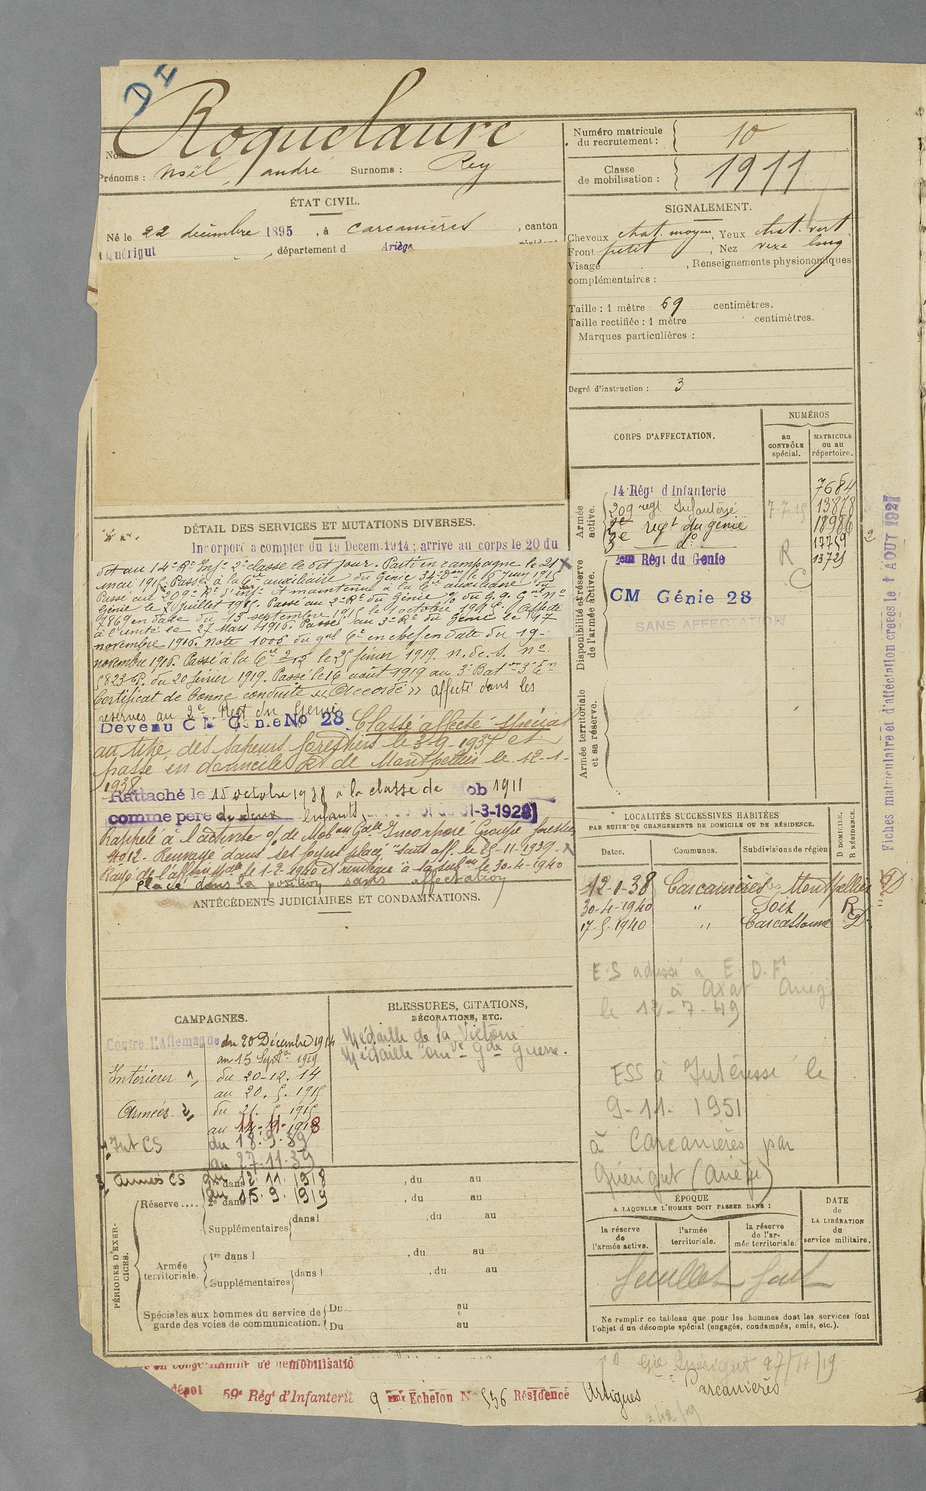 DI
Roquelaure
Nom
Prénoms : Noël, André Surnoms : Rey
Numéro matricule du recrutement : 10
Classe de mobilisation : 1911
ÉTAT CIVIL.
Né le 22 décembre 1895, à Carcanières, canton
Quérigut, département d Ariège
SIGNALEMENT.
Cheveux chat. moyen, Yeux chat. vert
Front petit, Nez long
Visage , Renseignements physionomiques
complémentaires :
Taille : 1 mètre 69 centimètres.
Taille rectifiée : 1 mètre centimètres.
Marques particulières :
Degré d'instruction : 3
CORPS D'AFFECTATION.
NUMÉROS
au CONTRÔLE spécial.
MATRICULE ou au répertoire.
Armée active.
14 Régt d'Infanterie 7684
209 regt Infanterie 13878
2e regt du génie 18986
3e do 17759
Régt du Génie 13721
R
C
Disponibilité et réserve de l'armée active.
CM Génie 28
SANS AFFECTATION
Armée territoriale et sa réserve.
DÉTAIL DES SERVICES ET MUTATIONS DIVERSES.
Incorporé à compter du 19 Décem.1914 ; arrivé au corps le 20 du
dit au 14e Rt Inf. 2e classe le dit jour. Parti en campagne le 21
mai 1915. Passé à la Cie auxiliaire du Génie
Passé au 209e Rt d'Inf. et maintenu à la Cie auxiliaire du
Génie le 2 juillet 1915. Passé au 2e Rt du Génie
en date du 15 septembre 1915 le 1 octobre 1915. Affecté
à l'unité le 27 Mars 1916. Passé au 3e Rt du Génie le 17
novembre 1916. Note 1006 du Gal Ct en chef en date du 19
novembre 1916. Passé à la Cie le 25 février 1919.
du 20 février 1919. Passé le 16 août 1919 au 3e Bat
Certificat de bonne conduite "Accordé" affecté dans les
réserves au 2e Regt du Génie
Devenu CM Génie No 28. Classé affecté spécial
au titre des sapeurs forestiers le 3-9-1937 et
passé en domicile de Montpellier le 12-1-
1938
Rattaché le 15 octobre 1938 à la classe de Mob 1911
comme père de deux enfants 31-3-1928)
Rappelé à l'activité of de Mob on Gale Incorporé Groupe forestier
Renvoyé dans ses foyers placé sans aff. le 25-11-1939.
Rayé de l'aff. le 1-2-1940 le 30-4-1940
Placé dans la position sans affectation
ANTÉCÉDENTS JUDICIAIRES ET CONDAMNATIONS.
LOCALITÉS SUCCESSIVES HABITÉES
PAR SUITE DE CHANGEMENTS DE DOMICILE OU DE RÉSIDENCE.
Dates. Communes. Subdivisions de région.
D DOMICILE. R RÉSIDENCE.
12-1-38 Carcanières Montpellier D
30-4-1940 " Foix R
17-5-1940 " Carcassonne D
E.S adressé à E.D.F
à Axat
le 12-7-49
ESS à Intéressé le
9-11-1951
à Carcanières par
Quérigut (Ariège)
CAMPAGNES.
Contre l'Allemagne du 20 Décembre 1914
au 15 Septbre 1919
Intérieur du 20-12.14
au 20.5.1915
Armées du 21.5.1915
au 11-11-1918
Int CS du 18.9.39
au 27.11.39
Armées CS du 12.11.1918
au 15.9.1919
BLESSURES, CITATIONS,
DÉCORATIONS, ETC.
Médaille de la Victoire
Médaille Comve Gde Guerre.
PÉRIODES D'EXERCICES.
Réserve ....
1re dans l , du au
2e dans l , du au
Supplémentaires dans l , du au
Armée territoriale.
1re dans l , du au
Supplémentaires dans l , du au
Spéciales aux hommes du service de garde des voies de communication.
Du au
Du au
ÉPOQUE
A LAQUELLE L'HOMME DOIT PASSER DANS :
la réserve de l'armée active.
l'armée territoriale.
la réserve de l'armée territoriale.
DATE de LA LIBÉRATION du service militaire.
Ne remplir ce tableau que pour les hommes dont les services font
l'objet d'un décompte spécial (engagés, condamnés, omis, etc.).
en congé illimité de démobilisatio
dépôt 59e Régt d'Infanterie 9 eme Echelon No 536 Résidence Artigues
Carcanières
Fiches matriculaire et d'affectation créées le 1 AOUT 1927